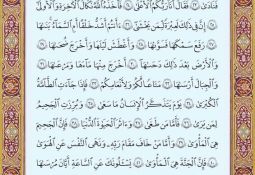 فَنَادَىٰ ۝٢٣ فَقَالَ أَنَا۠ رَبُّكُمُ ٱلْأَعْلَىٰ ۝٢٤ فَأَخَذَهُ ٱللَّهُ نَكَالَ ٱلْـَٔاخِرَةِ وَٱلْأُولَىٰٓ
۝٢٥ إِنَّ فِى ذَٰلِكَ لَعِبْرَةً لِّمَن يَخْشَىٰٓ ۝٢٦ ءَأَنتُمْ أَشَدُّ خَلْقًا أَمِ ٱلسَّمَآءُ ۚ بَنَىٰهَا
۝٢٧ رَفَعَ سَمْكَهَا فَسَوَّىٰهَا ۝٢٨ وَأَغْطَشَ لَيْلَهَا وَأَخْرَجَ ضُحَىٰهَا ۝٢٩
وَٱلْأَرْضَ بَعْدَ ذَٰلِكَ دَحَىٰهَآ ۝٣٠ أَخْرَجَ مِنْهَا مَآءَهَا وَمَرْعَىٰهَا ۝٣١
وَٱلْجِبَالَ أَرْسَىٰهَا ۝٣٢ مَتَٰعًا لَّكُمْ وَلِأَنْعَٰمِكُمْ ۝٣٣ فَإِذَا جَآءَتِ ٱلطَّآمَّةُ
ٱلْكُبْرَىٰ ۝٣٤ يَوْمَ يَتَذَكَّرُ ٱلْإِنسَٰنُ مَا سَعَىٰ ۝٣٥ وَبُرِّزَتِ ٱلْجَحِيمُ
لِمَن يَرَىٰ ۝٣٦ فَأَمَّا مَن طَغَىٰ ۝٣٧ وَءَاثَرَ ٱلْحَيَوٰةَ ٱلدُّنْيَا ۝٣٨ فَإِنَّ ٱلْجَحِيمَ
هِىَ ٱلْمَأْوَىٰ ۝٣٩ وَأَمَّا مَنْ خَافَ مَقَامَ رَبِّهِۦ وَنَهَى ٱلنَّفْسَ عَنِ ٱلْهَوَىٰ
۝٤٠ فَإِنَّ ٱلْجَنَّةَ هِىَ ٱلْمَأْوَىٰ ۝٤١ يَسْـَٔلُونَكَ عَنِ ٱلسَّاعَةِ أَيَّانَ مُرْسَىٰهَا